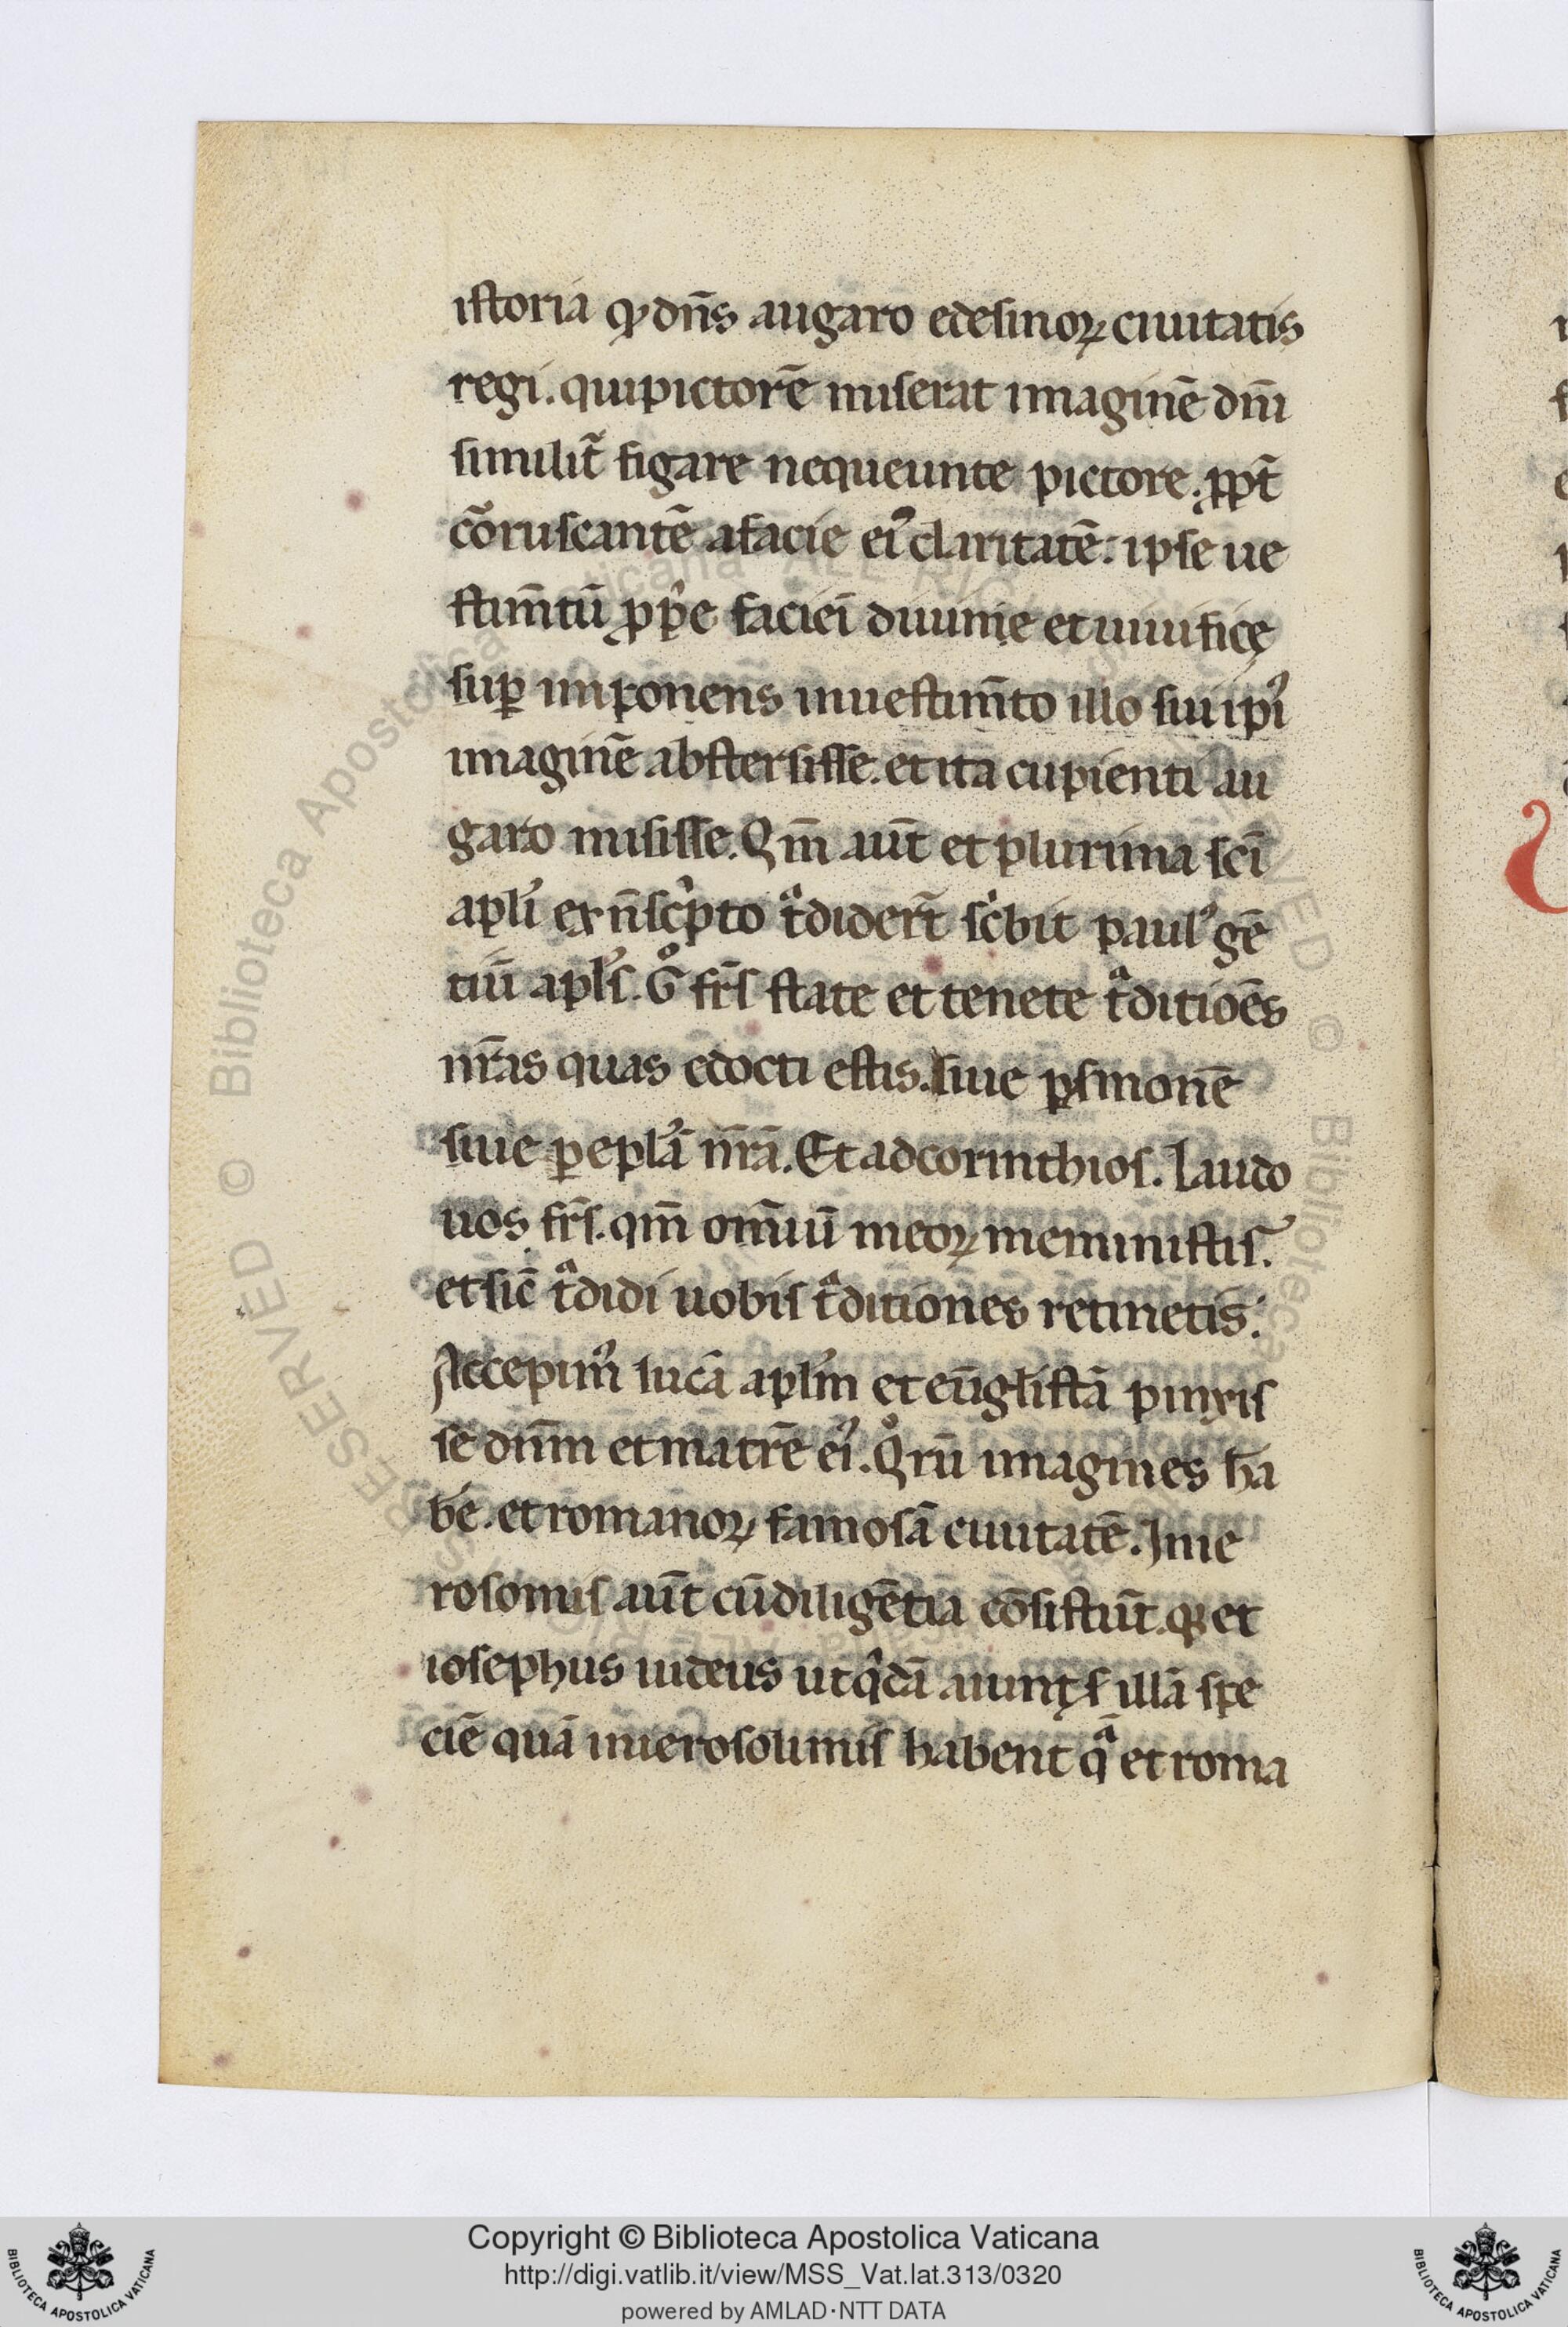 istoria ꝙ dn̄s augaro edesinoꝝ ciuitatis
regi. qui pictorē miserat imaginē dn̄i
similit̄ figare nequeunte pictore. ꝓpt̄
coruscantē a facie ei᾽ claritatē. ipse ue
stim̄tū ꝓp̄e faciei diuinę et uiuificę
suꝑ imponens in uestim̄to illo sui ip̄i᾽
imaginē abstersisse. et ita cupienti au
garo misisse. Qm̄ aūt et plurima sc̄i
apl̄i ex n̄ sc̓pto tͣdider̄t sc̓bit paul᾽ gē
tiū apl̓s. Gͦ fr̄s state et tenete tͣditiōes
nr̄as quas edocti estis. siue ꝑ smonē
siue ꝑ epl̓ā nr̄ā. Et ad corinthios. Laudo
uos fr̄s. qm̄ om̄iū meoꝝ meministis.
et sic̄ tͣdidi uobis tͣditiones retinetis.
Accepim᾽ lucā apl̓m et eūglistā pinxis
se dn̄m et matrē ei᾽. Qͦrū imagines ha
be. et romanoꝝ famosā ciuitatē. In ie
rosomis aūt cū diligētia cōsistūt. qꝫ et
iosephus iudeus ut qͥdā aiunt illā spe
ciē quā in ierosolimis habent qͣ et roma
Copyright © Biblioteca Apostolica Vaticana
http://digi.vatlib.it/view/MSS_Vat.lat.313/0320
powered by AMLAD·NTT DATA
BIBLIOTECA APOSTOLICA VATICANA
BIBLIOTECA APOSTOLICA VATICANA